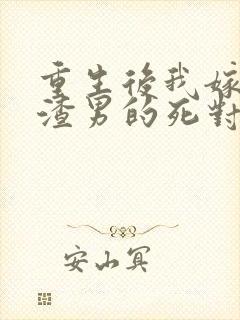 重生後我嫁
渣男的死對
安山冥